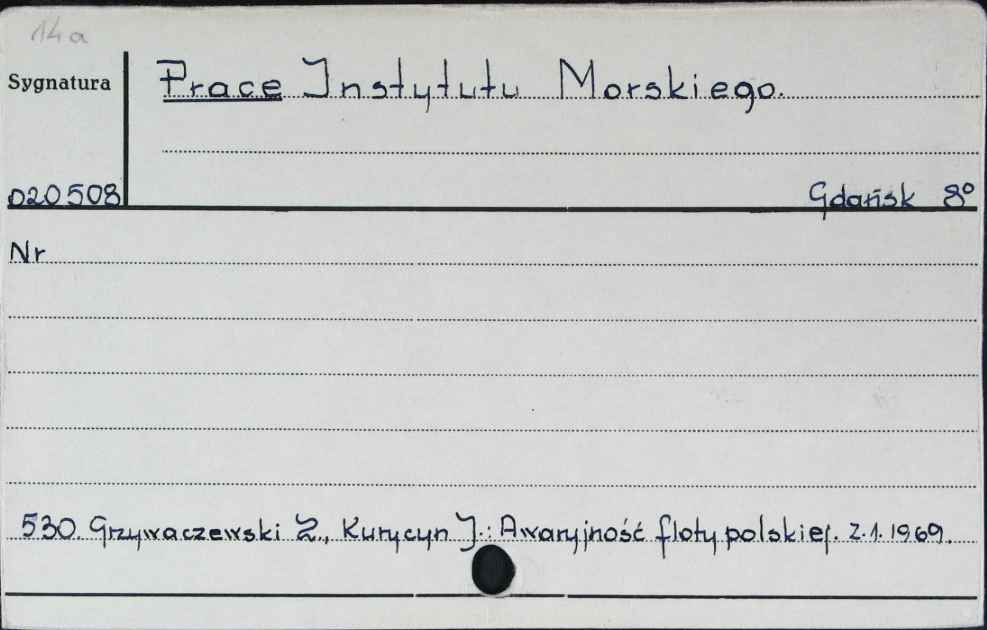 14a
Sygnatura
Prace Instytutu Morskiego.
D20508
Gdańsk 8°
Nr
530. Grzywaczewski Z., Kurycyn J.: Awaryjność floty polskiej. Z.1. 1969.